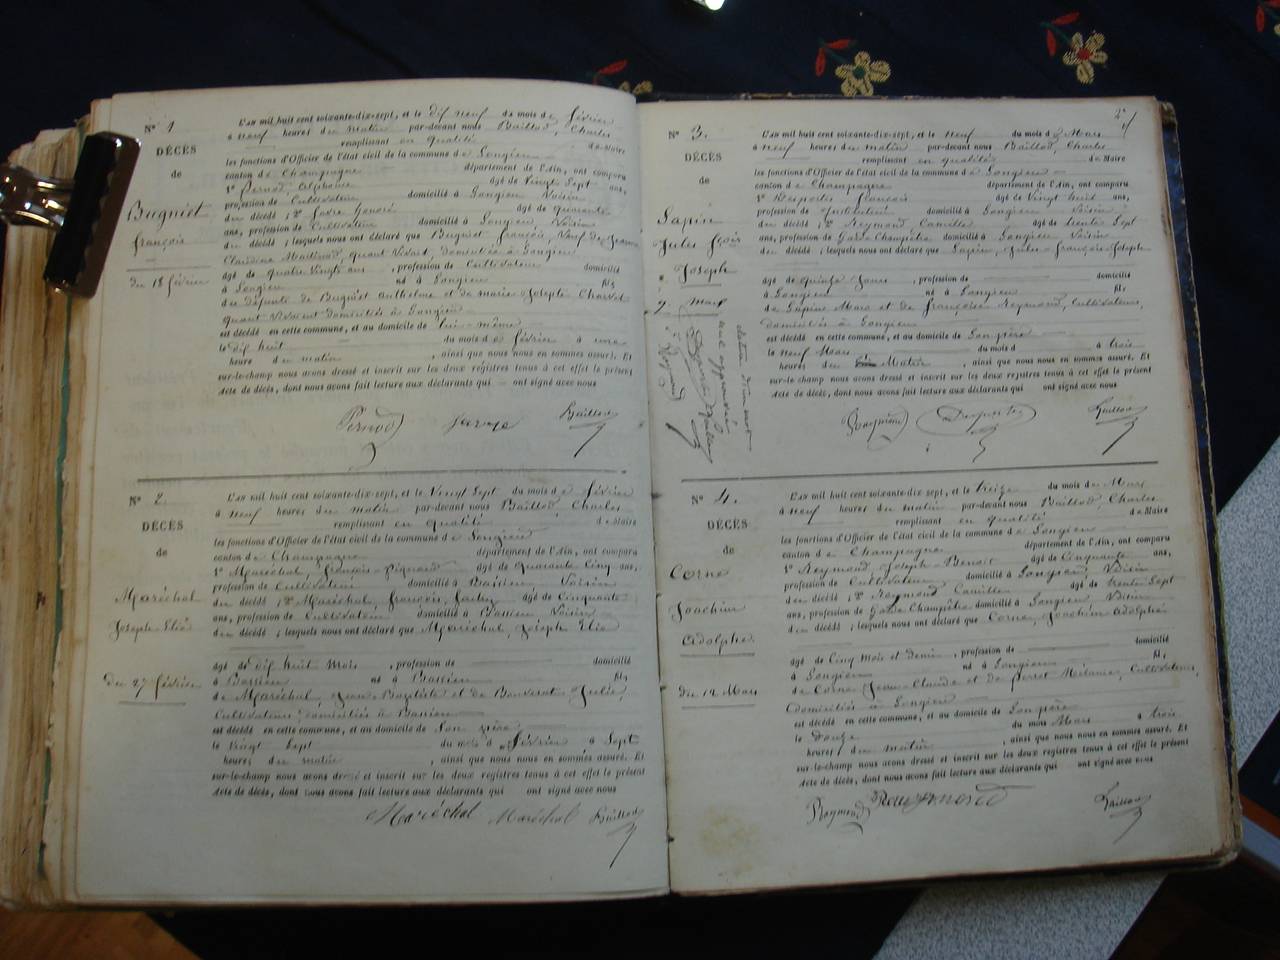 N° 1
DÉCÈS
de
Bugniet
françois
du 18 février
L'AN mil huit cent soixante-dix-sept, et le dif neuf du mois de février
à neuf heures du matin par-devant nous Baillod, Charles
remplissant en qualité de Maire
les fonctions d'Officier de l'état civil de la commune de Songieu
canton de Champagne département de l'Ain, ont comparu
1° Pernod Alphonse âgé de vingt sept ans,
profession de Cultivateur domicilié à Songieu Voisin
du décédé ; 2° Javre honoré âgé de quarante
ans, profession de Cultivateur domicilié à Songieu Voisin
du décédé ; lesquels nous ont déclaré que Bugniet françois, Veuf de Jeanne
Claudine Martinod, quant Vivait, domiciliée à Songieu
âgé de quatre vingts ans, profession de Cultivateur domicilié
à Songieu né à Songieu fils
des défunts de Bugniet Anthelme et de marie Josephte Charvet
quant Vivaient domiciliés à Songieu
est décédé en cette commune, et au domicile de lui-même
le dif huit du mois de février à une
heure du matin, ainsi que nous nous en sommes assuré. Et
sur-le-champ nous avons dressé et inscrit sur les deux registres tenus à cet effet le présent
Acte de décès, dont nous avons fait lecture aux déclarants qui ont signé avec nous
Pernod Javre Baillod
N° 2
DÉCÈS
de
Maréchal
Joseph Elie
du 27 février
L'AN mil huit cent soixante-dix-sept, et le Vingt Sept du mois de février
à neuf heures du matin par-devant nous Baillod, Charles
remplissant en qualité de Maire
les fonctions d'Officier de l'état civil de la commune de Songieu
canton de Champagne département de l'Ain, ont comparu
1° Maréchal, françois âgé de quarante Cinq ans,
profession de Cultivateur domicilié à Bassieu Voisin
du décédé ; 2° Maréchal, françois, âgé de Cinquante
ans, profession de Cultivateur domicilié à Bassieu Voisin
du décédé ; lesquels nous ont déclaré que Maréchal, Joseph Elie
âgé de dif huit mois, profession de domicilié
à Bassieu né à Bassieu fils
de Maréchal, Jean-Baptiste et de Bonverat Julie,
Cultivateurs, domiciliés à Bassieu
est décédé en cette commune, et au domicile de Son père
le Vingt Sept du mois de février à Sept
heures du matin, ainsi que nous nous en sommes assuré. Et
sur-le-champ nous avons dressé et inscrit sur les deux registres tenus à cet effet le présent
Acte de décès, dont nous avons fait lecture aux déclarants qui ont signé avec nous
Maréchal Maréchal Baillod
N° 3.
DÉCÈS
de
Sapin
Jules fçois
Joseph
9 mars
L'AN mil huit cent soixante-dix-sept, et le neuf du mois de Mars
à neuf heures du matin par-devant nous Baillod, Charles
remplissant en qualité de Maire
les fonctions d'Officier de l'état civil de la commune de Songieu
canton de Champagne département de l'Ain, ont comparu
1° Desportes françois âgé de Vingt huit ans,
profession de Instituteur domicilié à Songieu Voisin
du décédé ; 2° Reymond, Camille âgé de trente Sept
ans, profession de Garde Champêtre domicilié à Songieu Voisin
du décédé ; lesquels nous ont déclaré que Sapin, Jules-françois-Joseph
âgé de quinze Jours, profession de domicilié
à Songieu né à Songieu fils
de Sapin Marc et de françoise Reymond, Cultivateurs,
domiciliés à Songieu
est décédé en cette commune, et au domicile de Son père
le neuf Mars du mois d à trois
heures du Matin, ainsi que nous nous en sommes assuré. Et
sur-le-champ nous avons dressé et inscrit sur les deux registres tenus à cet effet le présent
Acte de décès, dont nous avons fait lecture aux déclarants qui ont signé avec nous
Reymond Desportes Baillod
N° 4.
DÉCÈS
de
Corne
Joachim
Adolphe
du 12 Mars
L'AN mil huit cent soixante-dix sept, et le treize du mois de Mars
à neuf heures du matin par-devant nous Baillod, Charles
remplissant en qualité de Maire
les fonctions d'Officier de l'état civil de la commune de Songieu
canton de Champagne département de l'Ain, ont comparu
1° Reymond, Joseph-Benoit âgé de Cinquante ans,
profession de Cultivateur domicilié à Songieu, Voisin
du décédé ; 2° Reymond Camille âgé de trente Sept
ans, profession de Garde Champêtre domicilié à Songieu Voisin
du décédé ; lesquels nous ont déclaré que Corne, Joachim Adolphe
âgé de Cinq mois et demi, profession de domicilié
à Songieu né à Songieu fils
de Corne Jean-Claude et de perret Mélanie, Cultivateurs,
domiciliés à Songieu
est décédé en cette commune, et au domicile de Son père
le douze du mois Mars à trois
heures du matin, ainsi que nous nous en sommes assuré. Et
sur-le-champ nous avons dressé et inscrit sur les deux registres tenus à cet effet le présent
Acte de décès, dont nous avons fait lecture aux déclarants qui ont signé avec nous
Reymond Reymond Baillod